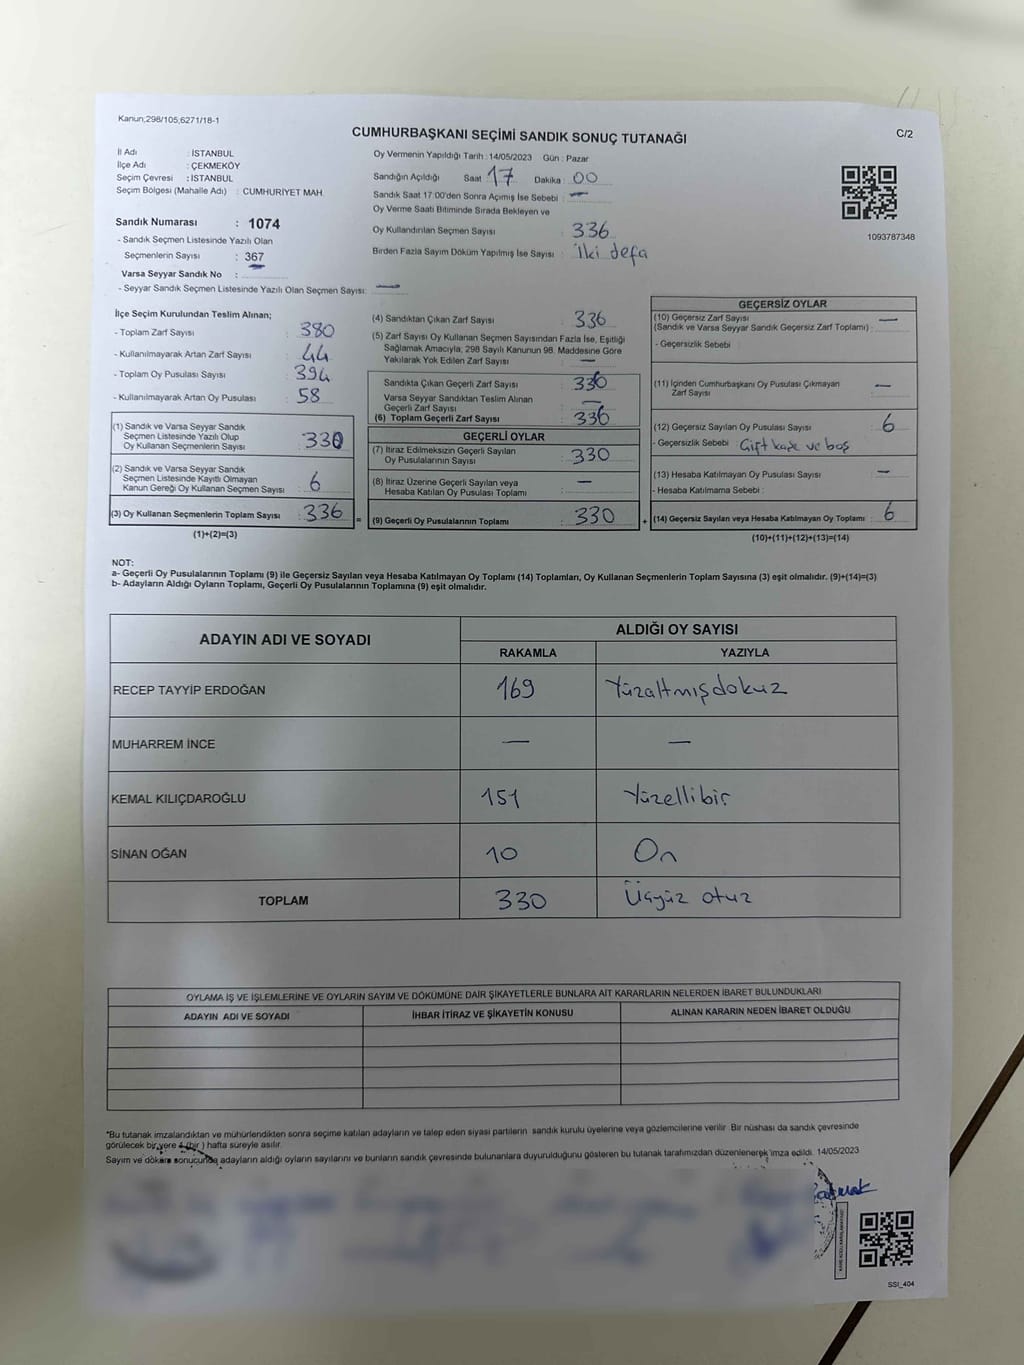 Kanun;298/105;6271/18-1
CUMHURBAŞKANI SEÇİMİ SANDIK SONUÇ TUTANAĞI
C/2
İl Adı : İSTANBUL
İlçe Adı : ÇEKMEKÖY
Seçim Çevresi : İSTANBUL
Seçim Bölgesi (Mahalle Adı) : CUMHURİYET MAH.
Sandık Numarası : 1074
- Sandık Seçmen Listesinde Yazılı Olan
Seçmenlerin Sayısı : 367
Varsa Seyyar Sandık No :
- Seyyar Sandık Seçmen Listesinde Yazılı Olan Seçmen Sayısı: —
Oy Vermenin Yapıldığı Tarih : 14/05/2023 Gün : Pazar
Sandığın Açıldığı Saat 17 Dakika : 00
Sandık Saat 17:00'den Sonra Açımış İse Sebebi : —
Oy Verme Saati Bitiminde Sırada Bekleyen ve
Oy Kullandırılan Seçmen Sayısı : 336
Birden Fazla Sayım Döküm Yapılmış İse Sayısı : İlki defa
1093787348
İlçe Seçim Kurulundan Teslim Alınan;
- Toplam Zarf Sayısı : 380
- Kullanılmayarak Artan Zarf Sayısı : 44
- Toplam Oy Pusulası Sayısı : 394
- Kullanılmayarak Artan Oy Pusulası : 58
(1) Sandık ve Varsa Seyyar Sandık
Seçmen Listesinde Yazılı Olup
Oy Kullanan Seçmenlerin Sayısı : 330
(2) Sandık ve Varsa Seyyar Sandık
Seçmen Listesinde Kayıtlı Olmayan
Kanun Gereği Oy Kullanan Seçmen Sayısı : 6
(3) Oy Kullanan Seçmenlerin Toplam Sayısı : 336 =
(1)+(2)=(3)
(4) Sandıktan Çıkan Zarf Sayısı : 336
(5) Zarf Sayısı Oy Kullanan Seçmen Sayısından Fazla İse, Eşitliği
Sağlamak Amacıyla, 298 Sayılı Kanunun 98. Maddesine Göre
Yakılarak Yok Edilen Zarf Sayısı : —
Sandıkta Çıkan Geçerli Zarf Sayısı : 336
Varsa Seyyar Sandıktan Teslim Alınan
Geçerli Zarf Sayısı : —
(6) Toplam Geçerli Zarf Sayısı : 336
GEÇERLİ OYLAR
(7) İtiraz Edilmeksizin Geçerli Sayılan
Oy Pusulalarının Sayısı : 330
(8) İtiraz Üzerine Geçerli Sayılan veya
Hesaba Katılan Oy Pusulası Toplamı : —
(9) Geçerli Oy Pusulalarının Toplamı : 330 +
GEÇERSİZ OYLAR
(10) Geçersiz Zarf Sayısı
(Sandık ve Varsa Seyyar Sandık Geçersiz Zarf Toplamı) : —
- Geçersizlik Sebebi :
(11) İçinden Cumhurbaşkanı Oy Pusulası Çıkmayan
Zarf Sayısı : —
(12) Geçersiz Sayılan Oy Pusulası Sayısı : 6
- Geçersizlik Sebebi : Çift kaşe ve boş
(13) Hesaba Katılmayan Oy Pusulası Sayısı : —
- Hesaba Katılmama Sebebi :
(14) Geçersiz Sayılan veya Hesaba Katılmayan Oy Toplamı : 6
(10)+(11)+(12)+(13)=(14)
NOT:
a- Geçerli Oy Pusulalarının Toplamı (9) ile Geçersiz Sayılan veya Hesaba Katılmayan Oy Toplamı (14) Toplamları, Oy Kullanan Seçmenlerin Toplam Sayısına (3) eşit olmalıdır. (9)+(14)=(3)
b- Adayların Aldığı Oyların Toplamı, Geçerli Oy Pusulalarının Toplamına (9) eşit olmalıdır.
ADAYIN ADI VE SOYADI ALDIĞI OY SAYISI
RAKAMLA YAZIYLA
RECEP TAYYİP ERDOĞAN 169 Yüzaltmışdokuz
MUHARREM İNCE — —
KEMAL KILIÇDAROĞLU 151 Yüzellibir
SİNAN OĞAN 10 On
TOPLAM 330 Üçyüz otuz
OYLAMA İŞ VE İŞLEMLERİNE VE OYLARIN SAYIM VE DÖKÜMÜNE DAİR ŞİKAYETLERLE BUNLARA AİT KARARLARIN NELERDEN İBARET BULUNDUKLARI
ADAYIN ADI VE SOYADI İHBAR İTİRAZ VE ŞİKAYETİN KONUSU ALINAN KARARIN NEDEN İBARET OLDUĞU
*Bu tutanak imzalandıktan ve mühürlendikten sonra seçime katılan adayların ve talep eden siyasi partilerin sandık kurulu üyelerine veya gözlemcilerine verilir. Bir nüshası da sandık çevresinde
görülecek bir yere 1 (bir ) hafta süreyle asılır.
Sayım ve döküm sonucunda adayların aldığı oyların sayılarını ve bunların sandık çevresinde bulunanlara duyurulduğunu gösteren bu tutanak tarafımızdan düzenlenerek imza edildi. 14/05/2023
SSI_404